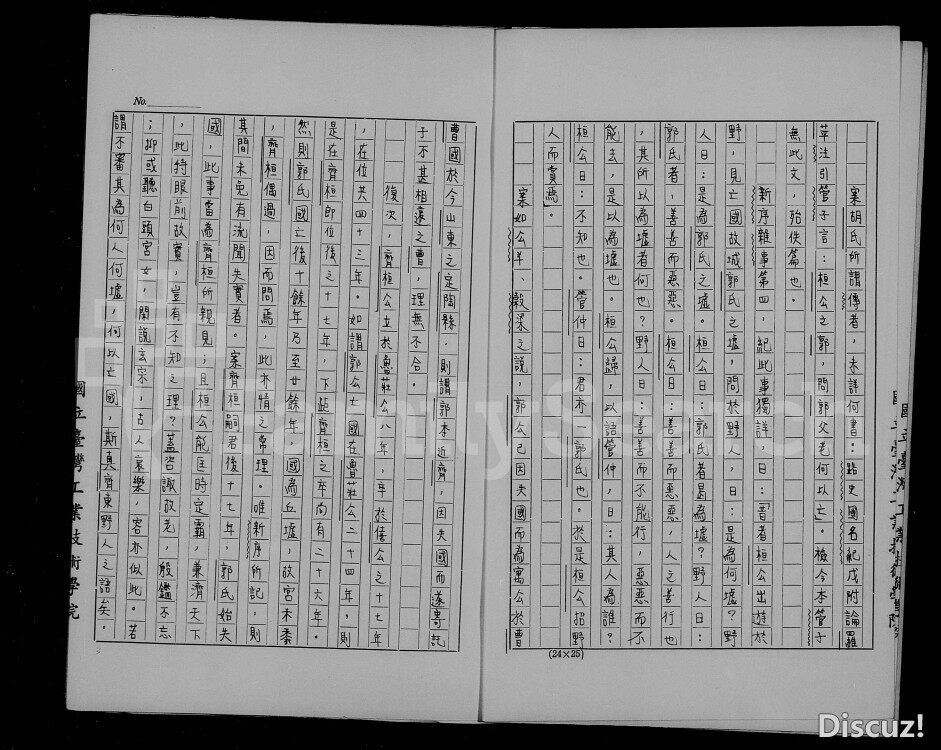 案胡氏所謂傳者，未詳何書：路史國名紀戊附論羅
苹注引管子言：桓公之郭，問郭父老何以亡。檢今本管子
無此文，殆佚篇也。
新序雜事第四，紀此事獨詳，曰：「昔者桓公出遊於
野，見亡國故城郭氏之墟，問於野人，曰：是為何墟？野
人曰：是為郭氏之墟。桓公曰：郭氏者曷為墟？野人曰：
郭氏者，善善而惡惡。桓公曰：善善而惡惡，人之善行也
，其所以為墟者何也？野人曰：善善而不能行，惡惡而不
能去，是以為墟也。桓公歸，以語管仲，曰：其人為誰？
桓公曰：不知也。管仲曰：君亦一郭氏也。於是桓公招野
人而賞焉」。
案如公羊、穀梁之說，郭公已因失國而為寓公於曹
(24×25)
No.
曹國於今山東之定陶縣，則謂郭本近齊，因失國而遂寄託
于不甚相遠之曹，理無不合。
復次，齊桓公立於魯莊公八年，卒於僖公之十七年
，在位共四十三年。如謂郭公亡國在魯莊公二十四年，則
是在齊桓即位後之十七年，下距齊桓之卒尚有二十六年。
然則郭氏國亡後十餘年乃至廿餘年，國為丘墟，故宮禾黍
，齊桓偶過，因而問焉，此亦情之常理。唯新序所記，則
其間未免有流聞失實者。案齊桓嗣君後十七年，郭氏始失
國，此事當為齊桓所親見；且桓公能匡時定霸，兼濟天下
，此特眼前故實，豈有不知之理？蓋咨諏故老，殷鑑不忘
；抑或聽白頭宮女，閑說玄宗，古人哀樂，容亦似此。若
謂不審其為何人何墟，何以亡國，斯真齊東野人之語矣。
國立臺灣工業技術學院
Discuz!